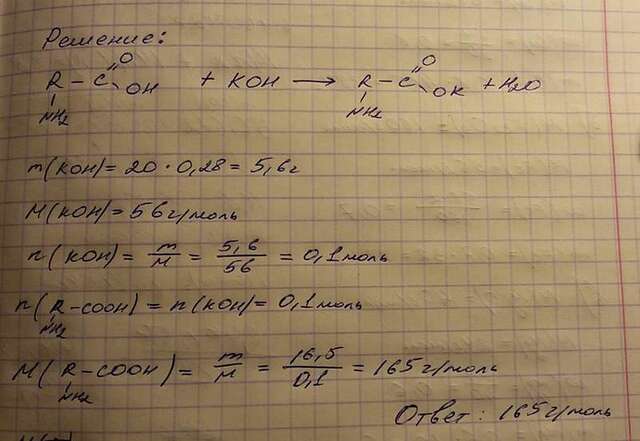 Решение:
R - C = O - OH + KOH → R - C = O - OK + H2O
NH2 NH2
m(KOH) = 20 · 0,28 = 5,6г
M(KOH) = 56г/моль
n(KOH) = m/M = 5,6/56 = 0,1моль
n(R-COOH) = n(KOH) = 0,1моль
NH2
M(R-COOH) = m/M = 16,5/0,1 = 165г/моль
NH2
Ответ: 165г/моль